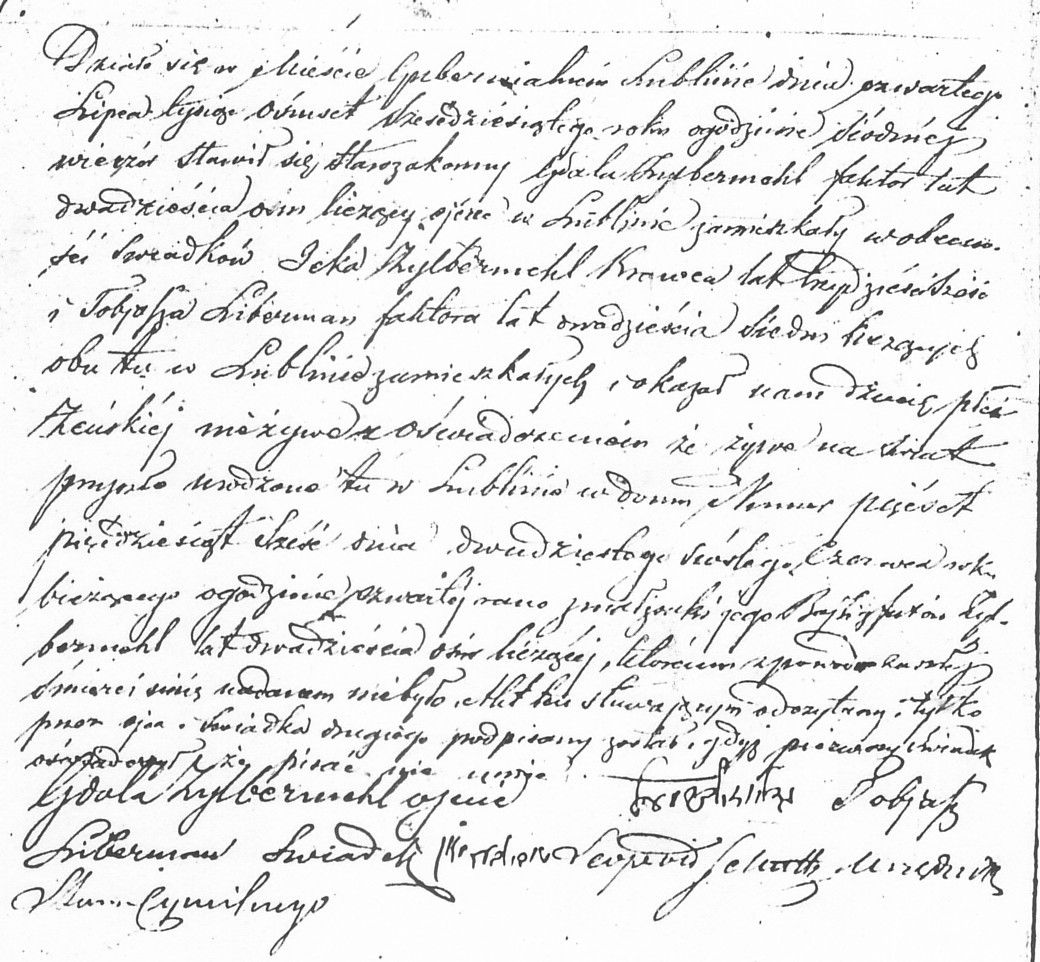 Działo się w Mieście Gubernialném Lublinie dnia czwartego
Lipca tysiąc ośmset sześćdziesiątego roku o godzinie siódméj
wieczór stawił się starozakonny Gdala Zylbermehl faktor lat
dwadzieścia ośm liczący ojciec w Lublinie zamieszkały w obecno-
ści świadków Icka Zylbermehl Krawca lat trzydzieści sześć
i Tobjasza Liberman faktora lat dwadzieścia siedm liczących
obu tu w Lublinie zamieszkałych, i okazał nam dziecię płci
Żeńskiéj nieżywe z oświadczeniem że żywe na świat
przyszło urodzone tu w Lublinie w domu Numer pięćset
pięćdziesiąt sześć dnia dwudziestego szóstego Czerwca roku
bieżącego o godzinie czwartéj rano z małżonki jego Zyl-
bermehl lat dwadzieścia ośm liczącéj, któremu z powodu zaszłéj
śmierci imię nadanem niebyło, Akt ten stawającym odczytany i tylko
przez ojca i świadka drugiego podpisany został, gdyż pierwszy świadek
oświadczył że pisać nie umie
Gdala Zylbermehl ojciec Tobjasz
Liberman Swiadek Leopold Schutt Urzędnik
Stanu Cywilnego